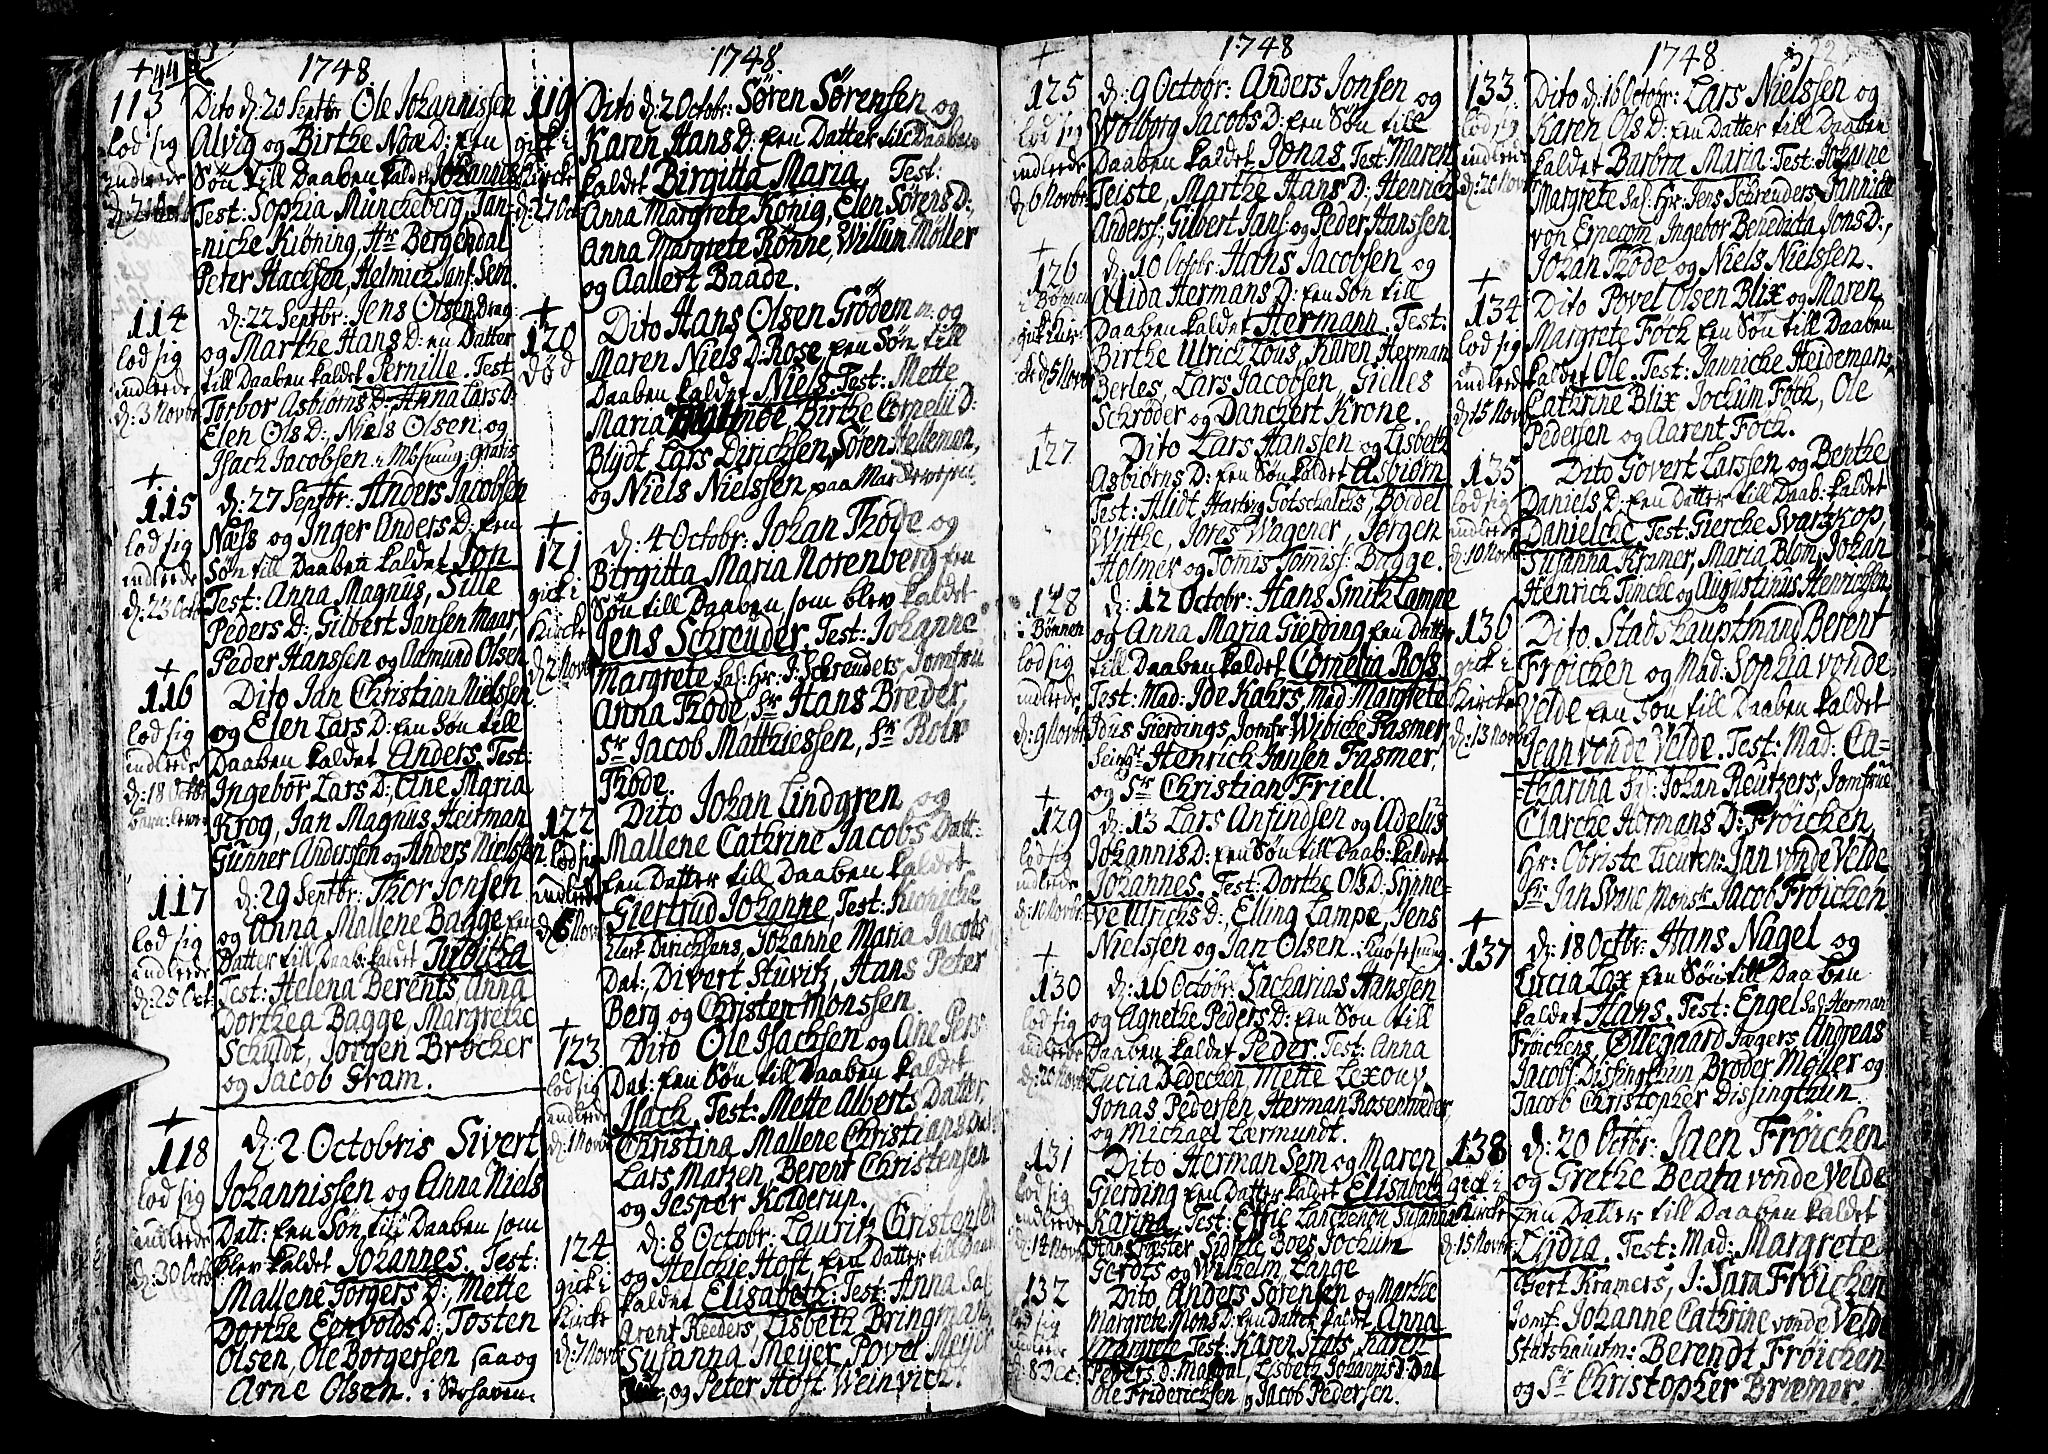 1748
113
lod sig
indlede
Dito d: 20 Septbr Ole Johannissen
Alvig og Birthe Noa D: een
Søn till Daaben kaldet Johannis
Test: Sophia Müncheberg, Jan-
-niche Kiøning, Hr Bergendal
Peter Hachsen, Helmich Jans: Sem.
114
lod sig
indlede
d: 3 Novbr
d: 22 Septbr: Jens Olsen Drag:
og Marthe Hans D: en Datter
till Daaben kaldet Pernille. Test
Torbor Asbiørns D: Anna Lars D:
Elen Ols D:, Niels Olsen og
Isach Jacobsen. gratis
115
lod sig
indlede
d: 23 Octb
d: 27 Septbr: Anders Jacobsen
Næss og Inger Anders D: een
Søn till Daaben kaldet Jon
Test: Anna Magnus, Sille
Peders D:, Gilbert Jansen Maar,
Peder Hanssen og Aamund Olsen
116
lod sig
indlede
d: 18 Octbr
Dito Jan Christian Nielssen
og Elen Lars D: een Søn till
Daaben kaldet Anders. Test:
Ingebor Lars D:, Ane Maria
Krog, Jan Magnus Heirman
Gunner Anderssen og Anders Nielssen
117
lod sig
indlede
d: 25 Oct
d: 29 Septbr: Thor Jonsen
og Anna Mallene Bagge een
Datter till Daab: kaldet Juditha
Test: Helena Berents, Anna
Dorthea Bagge, Margretie
Schuldt, Jørgen Brøcher
og Jacob Fram.
118
lod sig
indlede
d: 30 Octb
d: 2 Octobris Sivert
Johannissen og Anna Niels
Datt: een Søn, till Daaben som
blev kaldet Johannes. Test:
Mallene Torgers D:, Mette
Dorthe Eenvolds D:, Tosten
Olsen, Ole Borgersen saa og
Arne Olsen. i Strhaven.
1748
119
gick i
Kircke
d: 27 Oct
Dito d: 2 Octobr: Søren Sørensen og
Karen Hans D: een Datter till Daaben
kaldet Birgitta Maria, Test:
Anna Margrete König, Elen Sørens D:,
Anna Margrete Rønne, Willum Møller
og Aallert Baade.
120
Død
Dito Hans Olsen Grødem og
Maren Niels D: Rose, een Søn till
Daaben kaldet Niels. Test: Mette
Maria Birthe Cornelii D:
Blijdt Lars Dirichsen, Søren Helleman,
og Niels Nielssen,
121
gick i
Kircke
d: 2 Novbr
d: 4 Octobr: Johan Thode og
Birgitta Maria Norenberg een
Søn till Daaben, som blev kaldet
Jens Schreuder. Test: Johanne
Margrete Sal: Hr: J: Schreuders, Jomfru
Anna Thode, Sr Hans Breder,
Sr Jacob Matthiessen, Sr Rolv
Thode.
122
lod sig
indlede
d: 6 Nov
Dito Johan Lindgren og
Mallene Cathrine Jacobs Datt:
een Datter till Daaben kaldet
Giertrud Johanne, Test:
Dirichsens, Johanne Maria Jacobs
Dat:, Divert Stuvitz, Hans Peter
Berg og Christen Monssen.
123
lod sig
indlede
d: 1 Novb
Dito Ole Isachsen og Ane Pers
Dat: een Søn till Daaben kaldet
Isach. Test: Mette Alberts Datter,
Christina Mallene Christians Dat
Lars, Matzen, Berent Christensen
og Jesper Kolderup.
124
gick i
Kircke
d: 7 Novb
d: 8 Octobr: Lauritz Christensen
og Helchie Hoft, een Datter till Daab
kaldet Elisabeth: Test: Anna Sal:
Arent Reeders, Lisbeth Bringman,
Susanna Meyer, Povel Meyer
og Peter Hoft Weinvich.
1748
125
lod sig
indlede
d: 6 Novbr
d: 9 Octobr: Anders Jonsen og
Wolborg Jacobs D: een Søn till
Daaben kaldet Jonas. Test: Maren
Teiste, Marthe Hans D:, Henrich
Anderss:, Gilbert Jans: og Peder Hanssen.
126
i Bønnen
gick Kir-
cke d 5 Novb
d: 10 Octobr: Hans Jacobsen og
Alida Hermans D: een Søn till
Daaben kaldet Hermann. Test:
Birthe Ulrich Lous, Karen Herman
Berles, Lars Jacobsen, Gielles
Schrøder og Danchert Krone.
127
Dito Lars Hanssen og Lisbeth
Asbiørns D: een Søn kaldet Asbiørn
Test: Alidt Hartvig Gotschalchs, Bordel
Witthe, Jores Wagener, Jørgen
Holmer og Tomis Tomiss: Bagge.
128
i Bønnen
lod sig
indlede
d: 9 Novbr
d: 12 Octobr: Hans Smith Lampe
og Anna Maria Gierding een Datter
till Daaben kaldet Cornelia Rols
Test: Mad: Ide Kahrs, Mad: Margrete
Idus Gierdings, Jomfr: Wibicke Fasmer,
Seigr: Henrich Jansen Fasmer,
og Sr Christian Friell
129
lod sig
indlede
d: 10 Novbr
d: 13 Lars Anfindsen og Adelus
Johannis D: een Søn till Daab: kaldet
Johannes. Test: Dorthe Ols D: Synne-
ve Ulrichs D:, Elling Lampe, Jens
Nielssen og Jan Olsen.
130
lod sig
indlede
d: 20 Novb
d: 16 Octobr: Zacharias Hanssen
og Agnethe Peders D: een Søn till
Daaben kaldet Peder. Test: Anna
Lucia Dedechen, Mette Lexouv,
Jonas Pedersen Herman Rosenmeder,
og Michael Lærmundt.
131
lod sig
indlede
d: 14 Novb
Dito Herman Sem og Maren
Gierding een Datter kaldet Elisabeth
Karina. Test: Effie Lanchenou Susanna
Hans Sidsele Boes Jochum
Gerdts og Wilhelm Lange
132
lod sig
indlede
d: 8 Dec:
Dito Anders Sørensen og Marthe
Margrete Mons D: een Datter kaldet Anna
Margrete Test: Karen Stats, Karen
Peders D: Lisbeth Johannis D:
Ole Friderichsen og Jacob Pedersen.
1748
133
lod sig
indlede
d: 20 Novbr
Dito d: 16 Octobr: Lars Nielssen og
Karen Ols D: een Datter till Daaben
kaldet Barbra Maria. Test: Johanne
Margrete Sal: Hr: Jens Schreuders, Jannicke
von Erpecom, Ingebor Benedicta Jons D:,
Johan Thode og Niels Nielssen.
134
lod sig
indlede
d: 15 Novb
Dito Povel Olsen Blix og Maren
Margrete Foch een Søn till Daaben
kaldet Ole. Test: Jannicke Heideman,
Cathrine Blix Jochum Foch, Ole
Pedersen og Aarent Foch.
135
lod sig
indlede
d: 10 Novb
Dito Govert Larssen og Benthe
Daniels D: een Datter till Daab: kaldet
Danielche. Test: Gierche Svartzkop,
Susanna Kramer, Maria Blom, Johan
Henrich Tincke og Augustinus Henrichsen
136
gick i
Kircke
d: 13 Novb
Dito Stadshauptmand Berent
Frøichen og Mad: Sophia vonde
Velde een Søn till Daaben kaldet
Jean vonde Velde. Test: Mad: Ca-
-tharina Sl: Johan Reutzers, Jomfrue
Clarche Hermans D: Frøichen,
Hr: Christe Lieuten: Jan vonde Velde
Sr Jan Svane Monsr Jacob Frøichen.
137
d: 18 Octbr: Hans Nagel og
Lucia Lax een Søn till Daaben
kaldet Hans. Test: Engel Sal: Herman
Frøichens, Øllegaard Jægers, Andreas
Jacobs Dissingthun, Broder Møller og
Jacob Christopher Dissingthun.
138
gick i
Kircke
d: 15 Novbr
d: 20 Octbr: Jaen Frøichen
og Grethe Beata vonde Velde
een Datter till Daaben kaldet
Lydia. Test: Mad: Margrete
Gert Kramers, J: Sara Frøichen
Jomf: Johanne Cathrine vonde Velde
Statshauptm: Berendt Frøichen
og Sr Christopher Bræmer.